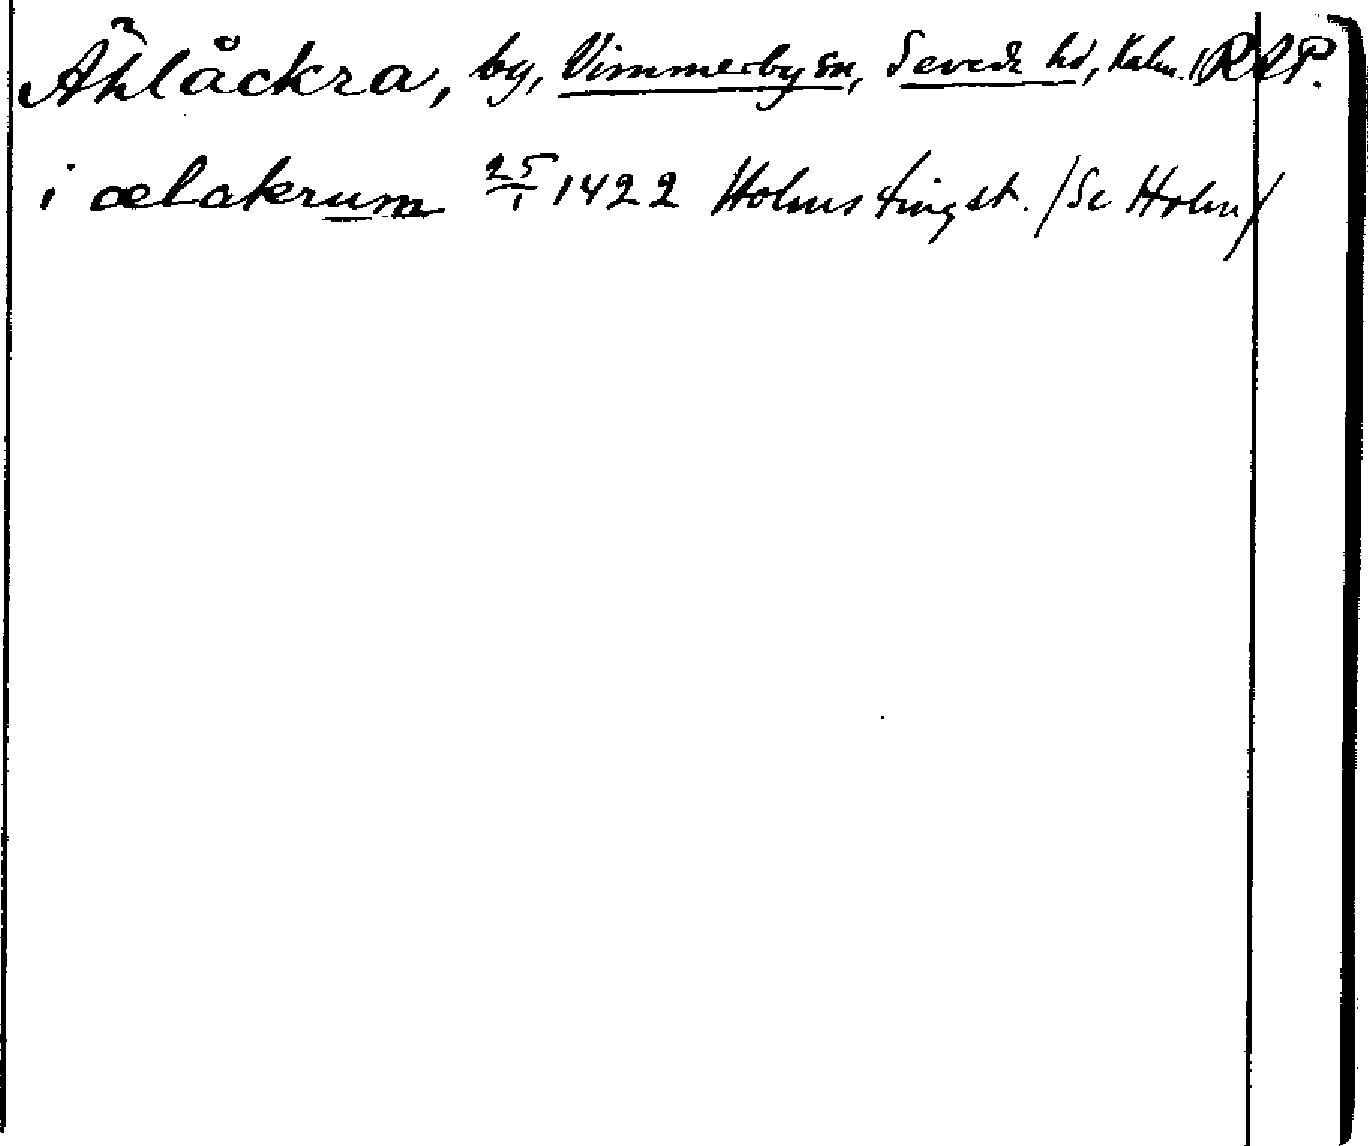 Ählåckra, by, Vimmerby sn, Sevede hd, Kalm. RAP.
i ælakrum 25/1 1422 Holms tingst. /Se Holm/